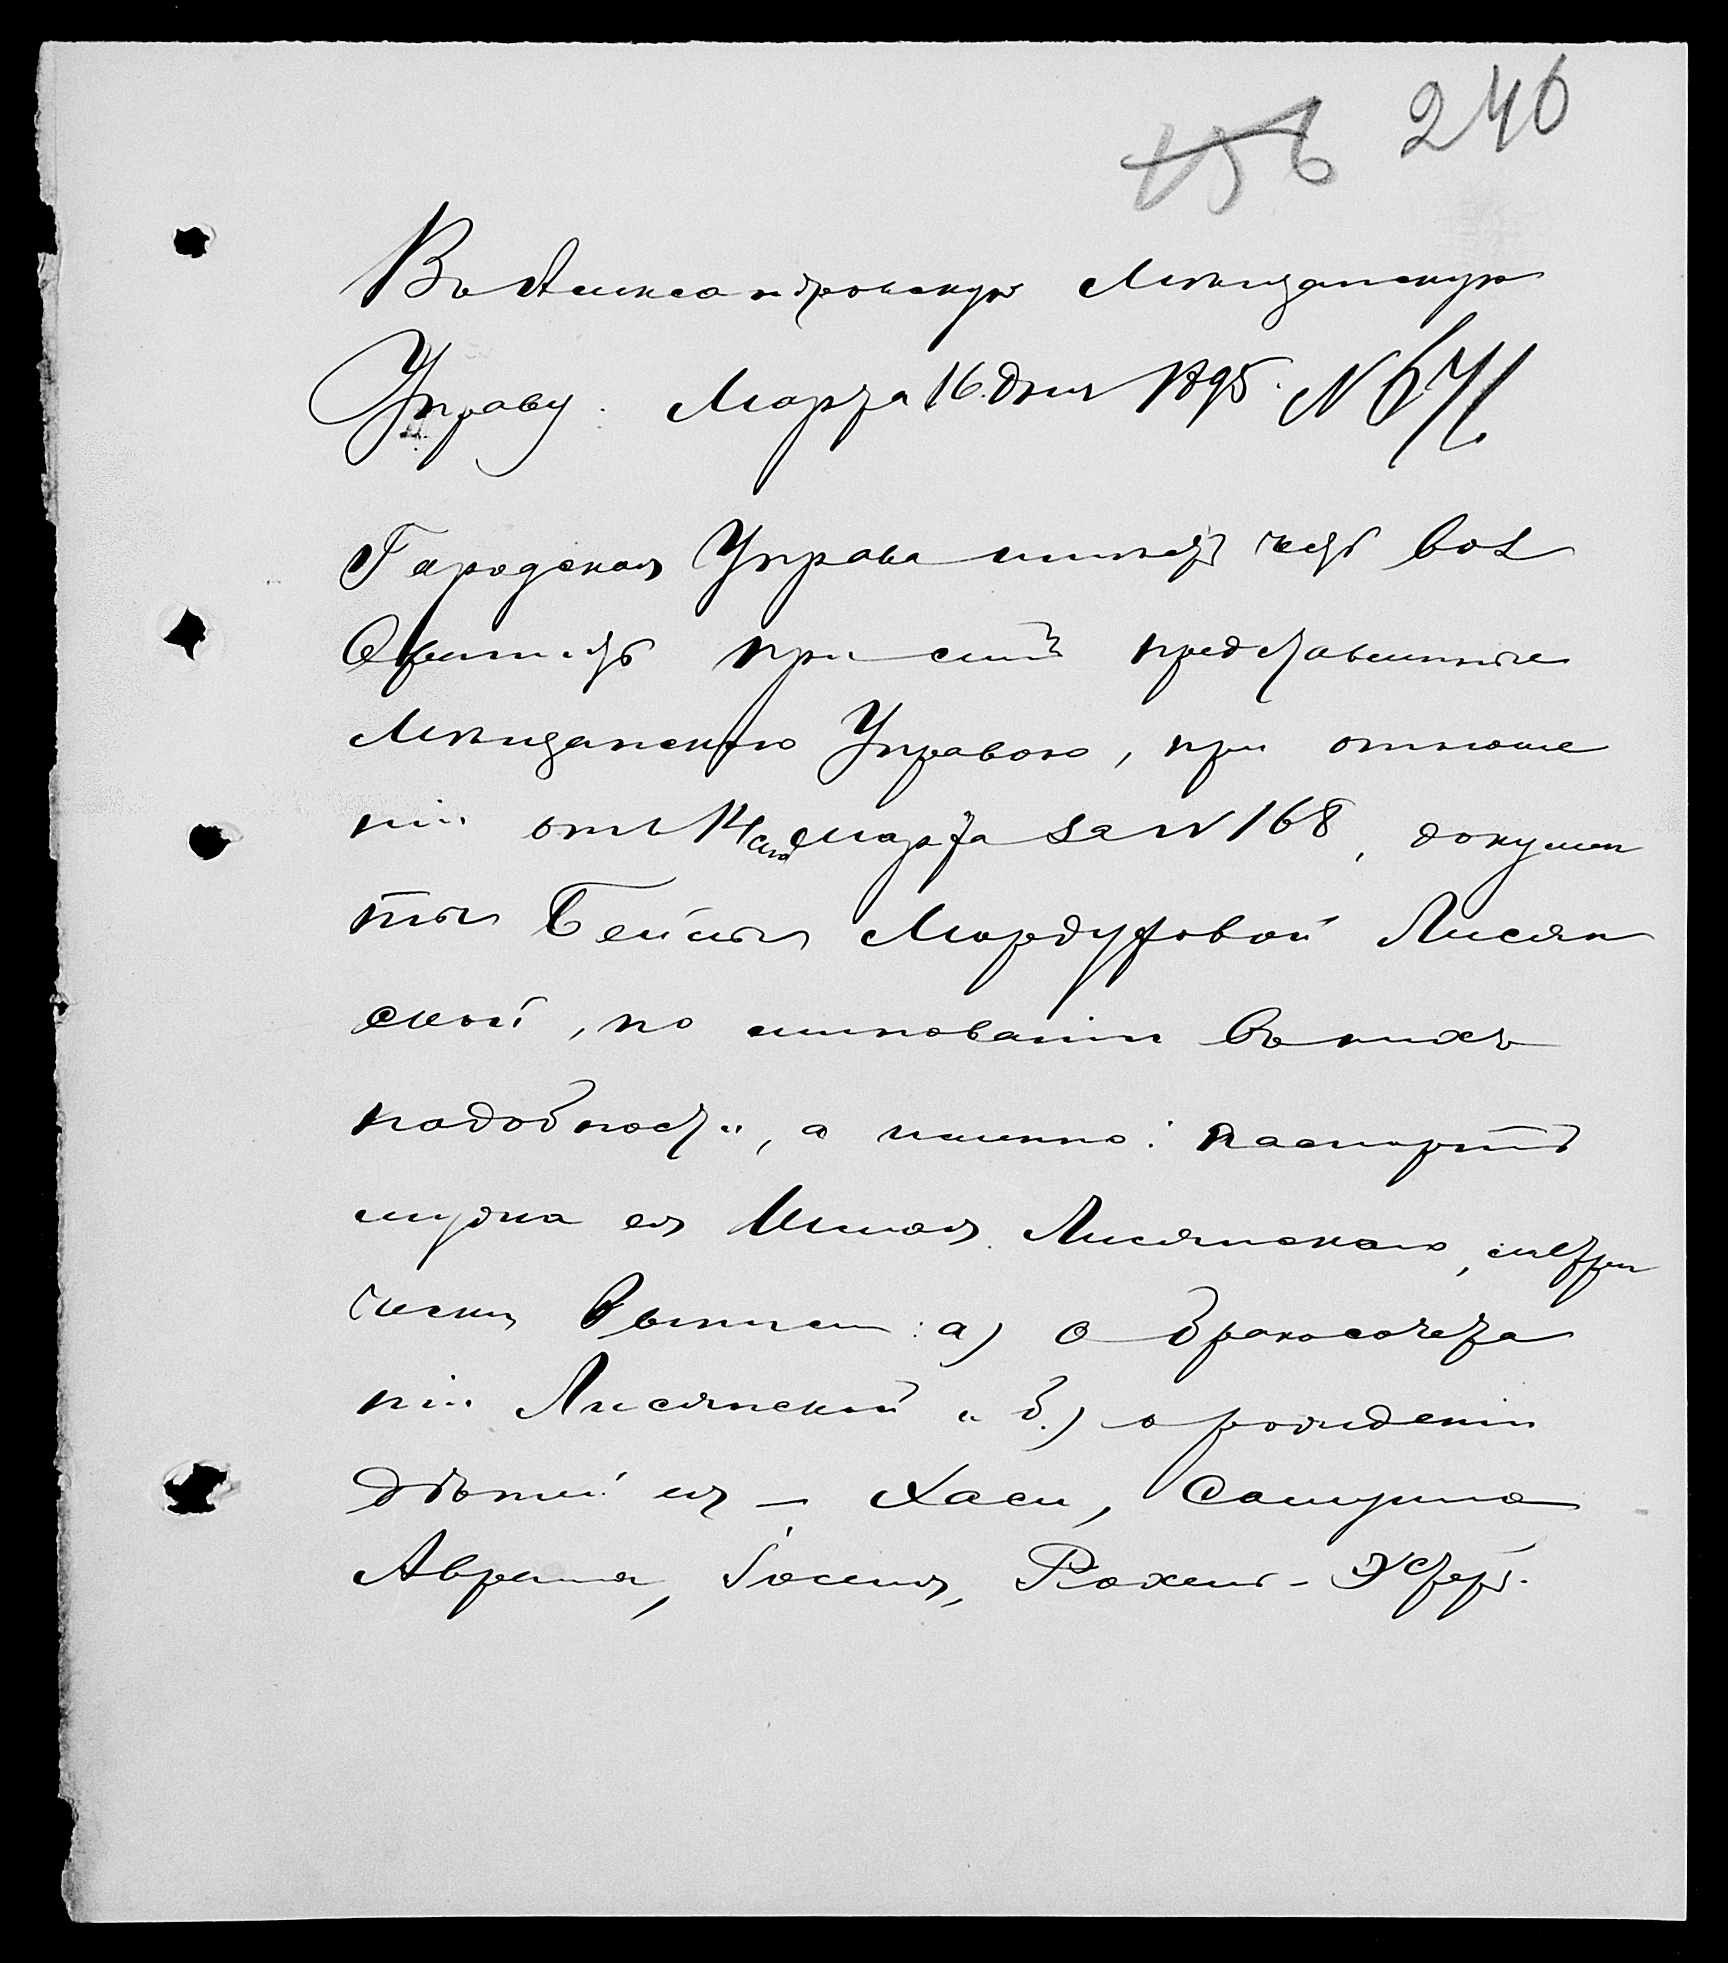 156 246
Въ Александровскую Мѣщанскую
Управу. Марта 16 дня 1895. N 671.
Городская Управа имѣетъ честь воз
вратить при семъ представленные
Мѣщанскою Управою, при отноше
ніи отъ 14 сего Марта за N 168, докумен
ты Бейлы Мордуховой Лисян
ской, по минованіи въ нихъ
надобности, а именно: паспортъ
мужа ея Лисянскаго, метри
ческія выписи: а) о бракосочета
ніи Лисянской и б.) о рожденіи
дѣтей ея – Хаси, Самуила
Аврама, Іосифа, Рохели – Эстеръ.